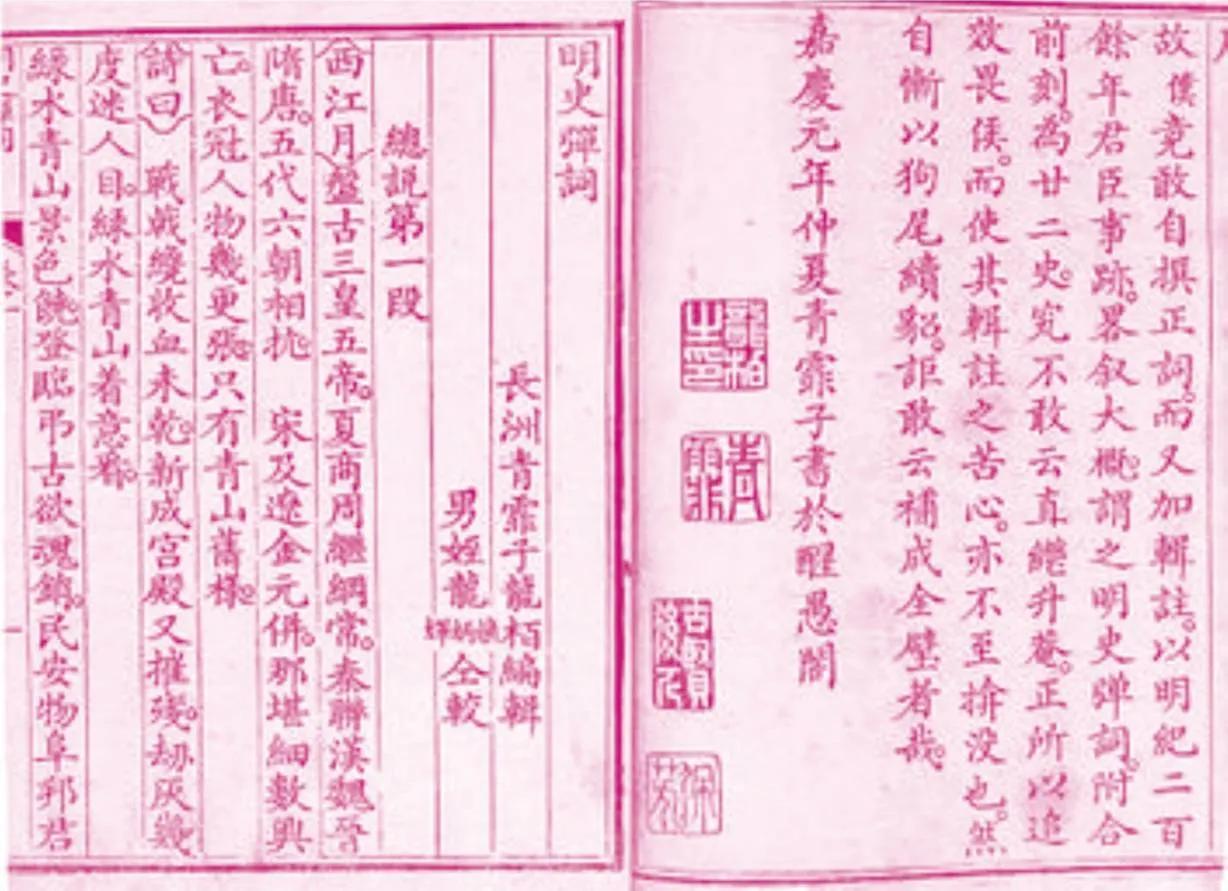 故僕竟敢自撰正詞。而又加輯註。以明紀二百
餘年君臣事跡。畧叙大概。謂之明史彈詞。附合
前刻。為廿二史。究不敢云直繼升菴。正所以追
效畏侯。而使其輯註之苦心。亦不至揜没也。然
自慚以狗尾續貂。詎敢云補成全壁者哉。
嘉慶元年仲夏青霏子書於醒愚閣
龍栢之印
青霏
明史彈詞
長洲青霏子龍栢編輯
男姪龍 仝較
總説第一段
西江月 盤古三皇五帝。夏商周繼綱常。秦聯漢魏晉
隋唐。五代六朝相抗 宋及遼金元併。那堪細數興
亡。衣冠人物幾更張。只有青山舊樣。
詩曰 戰戟纔收血未乾。新成宫殿又摧殘。刼灰幾
度迷人目。緑水青山着意看。
緑水青山景色饒。登臨弔古欲魂銷。民安物阜邦君